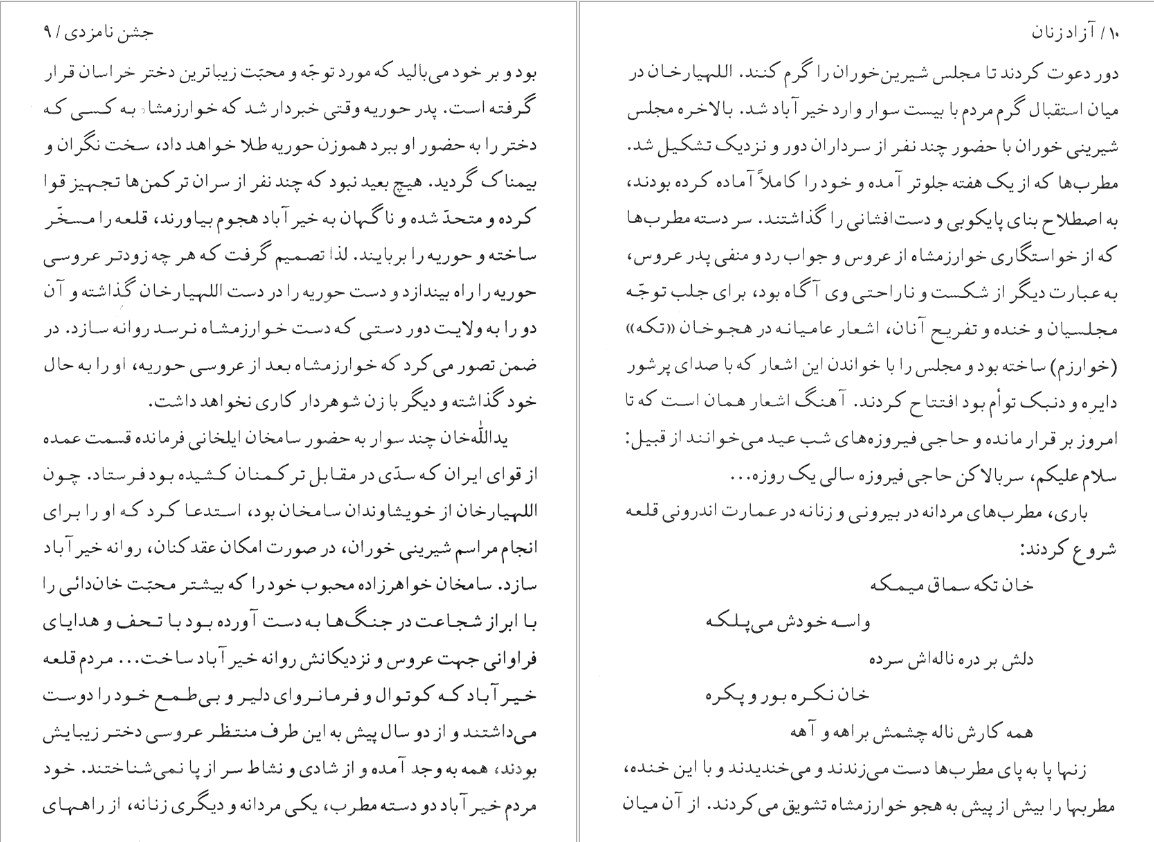 جشن نامزدی / ۹
بود و بر خود می‌بالید که مورد توجّه و محبّت زیباترین دختر خراسان قرار
گرفته است. پدر حوریه وقتی خبردار شد که خوارزمشاه به کسی که
دختر را به حضور او ببرد هموزن حوریه طلا خواهد داد، سخت نگران و
بیمناک گردید. هیچ بعید نبود که چند نفر از سران ترکمن‌ها تجهیز قوا
کرده و متحدّ شده و ناگهان به خیر آباد هجوم بیاورند، قلعه را مسخّر
ساخته و حوریه را بربایند. لذا تصمیم گرفت که هر چه زودتر عروسی
حوریه را راه بیندازد و دست حوریه را در دست اللهیارخان گذاشته و آن
دو را به ولایت دور دستی که دست خوارزمشاه نرسد روانه سازد. در
ضمن تصور می‌کرد که خوارزمشاه بعد از عروسی حوریه، او را به حال
خود گذاشته و دیگر با زن شوهردار کاری نخواهد داشت.
یدالله‌خان چند سوار به حضور سامخان ایلخانی فرمانده قسمت عمده
از قوای ایران که سدّی در مقابل ترکمنان کشیده بود فرستاد. چون
اللهیارخان از خویشاوندان سامخان بود، استدعا کرد که او را برای
انجام مراسم شیرینی خوران، در صورت امکان عقدکنان، روانه خیر آباد
سازد. سامخان خواهرزاده محبوب خود را که بیشتر محبّت خان‌دائی را
با ابراز شجاعت در جنگ‌ها به دست آورده بود با تحف و هدایای
فراوانی جهت عروس و نزدیکانش روانه خیر آباد ساخت... مردم قلعه
خیر آباد که کوتوال و فرمانروای دلیر و بی‌طمع خود را دوست
می‌داشتند و از دو سال پیش به این طرف منتظر عروسی دختر زیبایش
بودند، همه به وجد آمده و از شادی و نشاط سر از پا نمی‌شناختند. خود
مردم خیر آباد دو دسته مطرب، یکی مردانه و دیگری زنانه، از راههای
۱۰/ آزاد زنان
دور دعوت کردند تا مجلس شیرین‌خوران را گرم کنند. اللهیارخان در
میان استقبال گرم مردم با بیست سوار وارد خیر آباد شد. بالاخره مجلس
شیرینی خوران با حضور چند نفر از سرداران دور و نزدیک تشکیل شد.
مطرب‌ها که از یک هفته جلوتر آمده و خود را کاملاً آماده کرده بودند،
به اصطلاح بنای پایکوبی و دست‌افشانی را گذاشتند. سر دسته مطرب‌ها
که از خواستگاری خوارزمشاه از عروس و جواب رد و منفی پدر عروس،
به عبارت دیگر از شکست و ناراحتی وی آگاه بود، برای جلب توجّه
مجلسیان و خنده و تفریح آنان، اشعار عامیانه در هجوخان «تکه»
(خوارزم) ساخته بود و مجلس را با خواندن این اشعار که با صدای پر شور
دایره و دنبک توأم بود افتتاح کردند. آهنگ اشعار همان است که تا
امروز بر قرار مانده و حاجی فیروزه‌های شب عید می‌خوانند از قبیل:
سلام علیکم، سربالاکن حاجی فیروزه سالی یک روزه...
باری، مطرب‌های مردانه در بیرونی و زنانه در عمارت اندرونی قلعه
شروع کردند:
خان تکه سماق میمکه
واسه خودش می‌پلکه
دلش بر دره ناله‌اش سرده
خان نکره بور و پکره
همه کارش ناله چشمش براهه و آهه
زنها پا به پای مطرب‌ها دست می‌زندند و می‌خندیدند و با این خنده،
مطربها را بیش از پیش به هجو خوارزمشاه تشویق می‌کردند. از آن میان